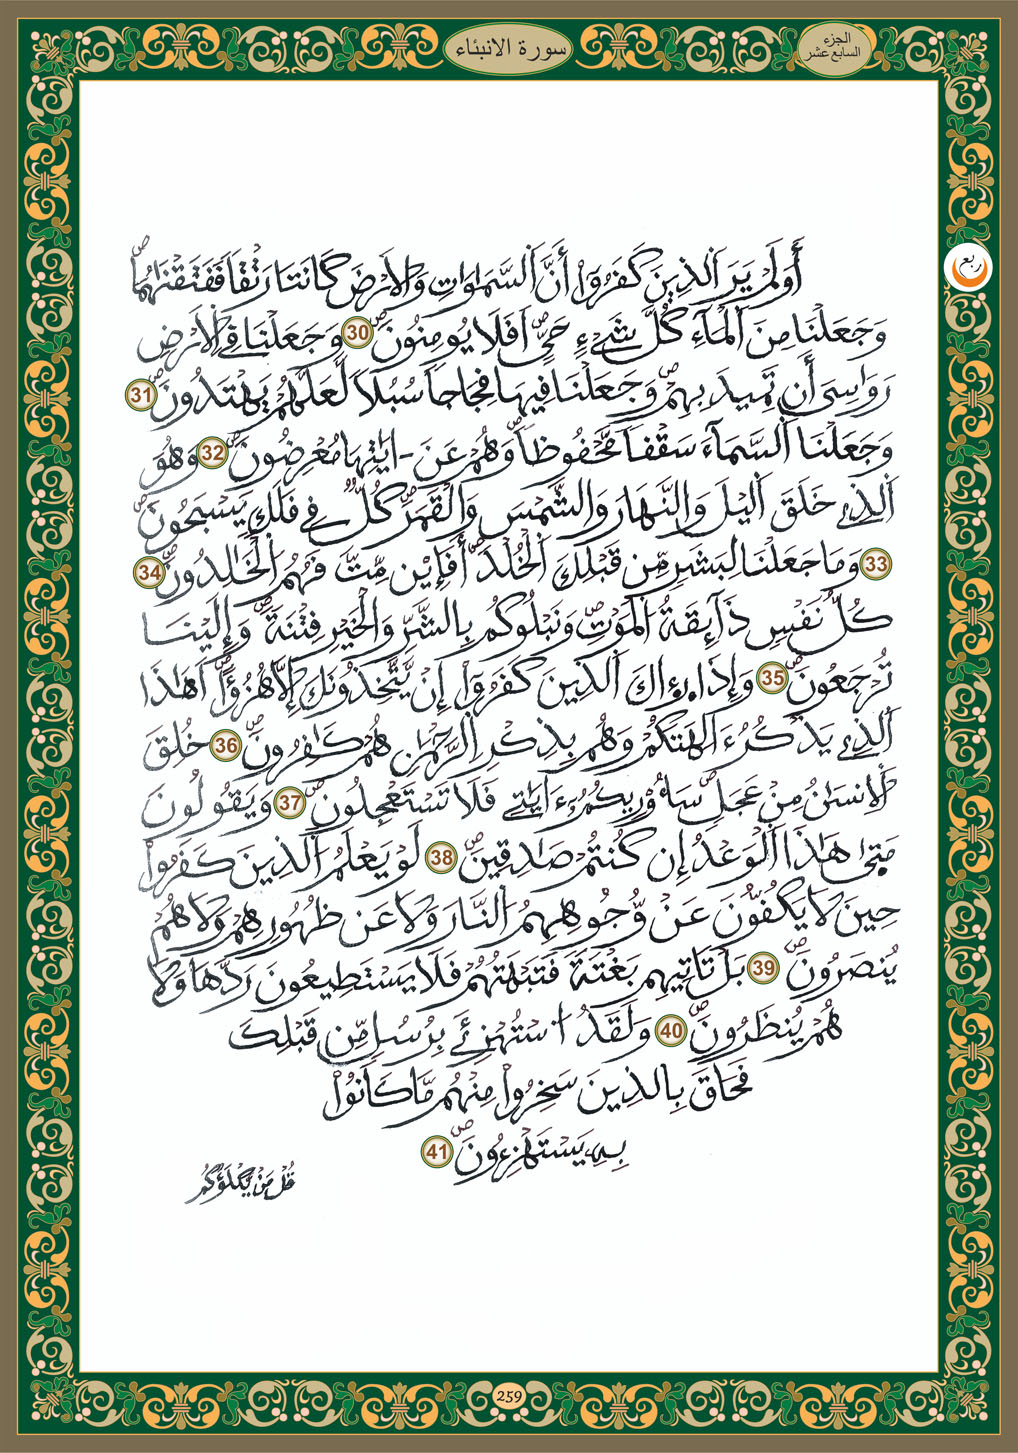 سورة الانبئاء
الجزء
السابع عشر
ربع
أَوَلَمْ يَرَ اَلذِينَ كَفَرُوٓاْ أَنَّ اَلسَّمَٰوَٰتِ وَالَارْضَ كَانَتَا رَتْقاً فَفَتَقْنَٰهُمَاۖ
وَجَعَلْنَا مِنَ اَلْمَآءِ كُلَّ شَےْءٍ حَيٍّۖ اَفَلَا يُومِنُونَۖ 30 وَجَعَلْنَا فِے اِلَارْضِ
رَوَٰسِىَ أَن تَمِيدَ بِهِمْۖ وَجَعَلْنَا فِيهَا فِجَاجاً سُبُلاً لَّعَلَّهُمْ يَهْتَدُونَۖ 31
وَجَعَلْنَا اَلسَّمَآءَ سَقْفاً مَّحْفُوظاًۖ وَهُمْ عَنَ ـايَٰتِهَا مُعْرِضُونَۖ 32 وَهُوَ
اَلذِے خَلَقَ اَليْلَ وَالنَّهَارَ وَالشَّمْسَ وَالْقَمَرَۖ كُلّٞ فِے فَلَكٍ يَسْبَحُونَۖ
33 وَمَا جَعَلْنَا لِبَشَرٍ مِّن قَبْلِكَ اَلْخُلْدَۖ أَفَإِيْن مِّتَّ فَهُمُ اُلْخَٰلِدُونَۖ 34
كُلُّ نَفْسٍ ذَآئِقَةُ اُلْمَوْتِۖ وَنَبْلُوكُم بِالشَّرِّ وَالْخَيْرِ فِتْنَةًۖ وَإِلَيْنَا
تُرْجَعُونَۖ 35 وَإِذَا رِءاكَ اَلذِينَ كَفَرُوٓاْ إِنْ يَّتَّخِذُونَكَ إِلَّا هُزُؤاًۖ اَهَٰذَا
اَلذِے يَذْكُرُ ءَالِهَتَكُمْ وَهُم بِذِكْرِ اِلرَّحْمَٰنِ هُمْ كَٰفِرُونَۖ 36 خُلِقَ
اَلِانسَٰنُ مِنْ عَجَلٍۖ سَأُوْرِيكُمُۥٓ ءَايَٰتِے فَلَا تَسْتَعْجِلُونِۖ 37 وَيَقُولُونَ
مَتَىٰ هَٰذَا اَلْوَعْدُ إِن كُنتُمْ صَٰدِقِينَۖ 38 لَوْ يَعْلَمُ اُلذِينَ كَفَرُواْ
حِينَ لَا يَكُفُّونَ عَنْ وُّجُوهِهِمُ اُلنَّارَ وَلَا عَن ظُهُورِهِمْ وَلَا هُمْ
يُنصَرُونَۖ 39 بَلْ تَاتِيهِم بَغْتَةً فَتَبْهَتُهُمْ فَلَا يَسْتَطِيعُونَ رَدَّهَا وَلَا
هُمْ يُنظَرُونَۖ 40 وَلَقَدُ اُسْتُهْزِئَ بِرُسُلٍ مِّن قَبْلِكَ
فَحَاقَ بِالذِينَ سَخِرُواْ مِنْهُم مَّا كَانُواْ
بِهِۦ يَسْتَهْزِءُونَۖ 41
قُلْ مَنْ يَّكْلَؤُكُم
259